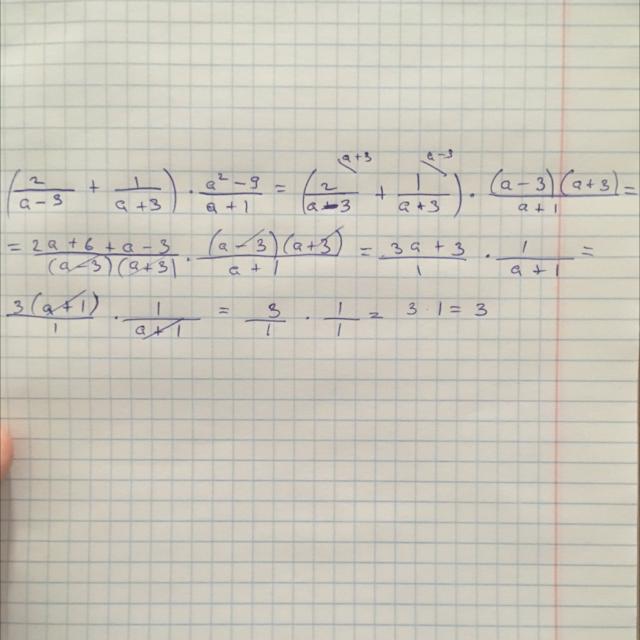 (2/(a-3) + 1/(a+3)) · (a²-9)/(a+1) = (2/(a-3) ^(a+3) + 1/(a+3) ^(a-3)) · (a-3)(a+3)/(a+1) =
= (2a+6+a-3)/((a-3)(a+3)) · (a-3)(a+3)/(a+1) = (3a+3)/1 · 1/(a+1) =
3(a+1)/1 · 1/(a+1) = 3/1 · 1/1 = 3·1 = 3